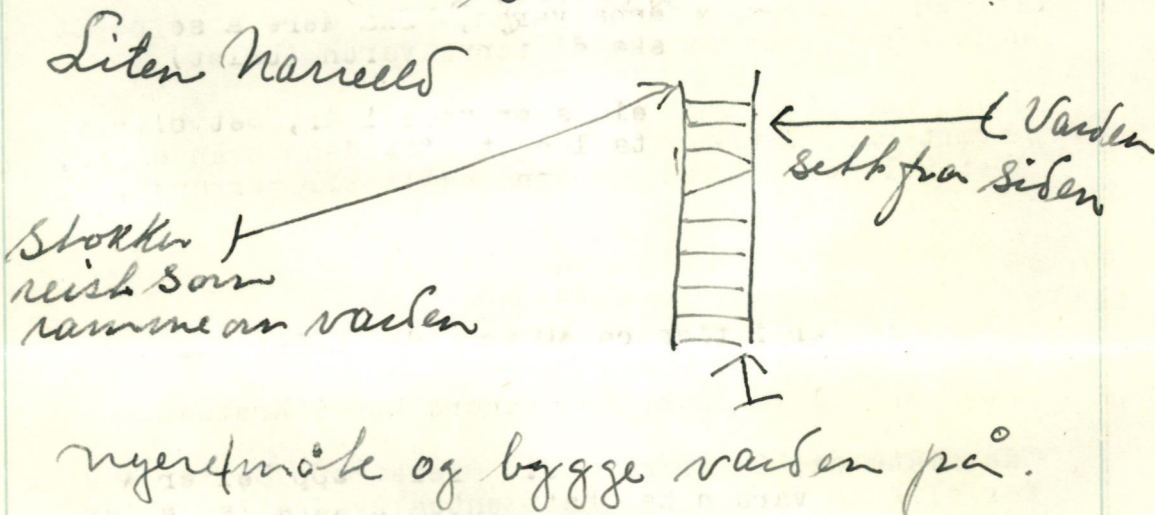 Liten
Varden
sett fra siden
stokker
reist som
ramme om varden
nyere måte og bygge varden på.